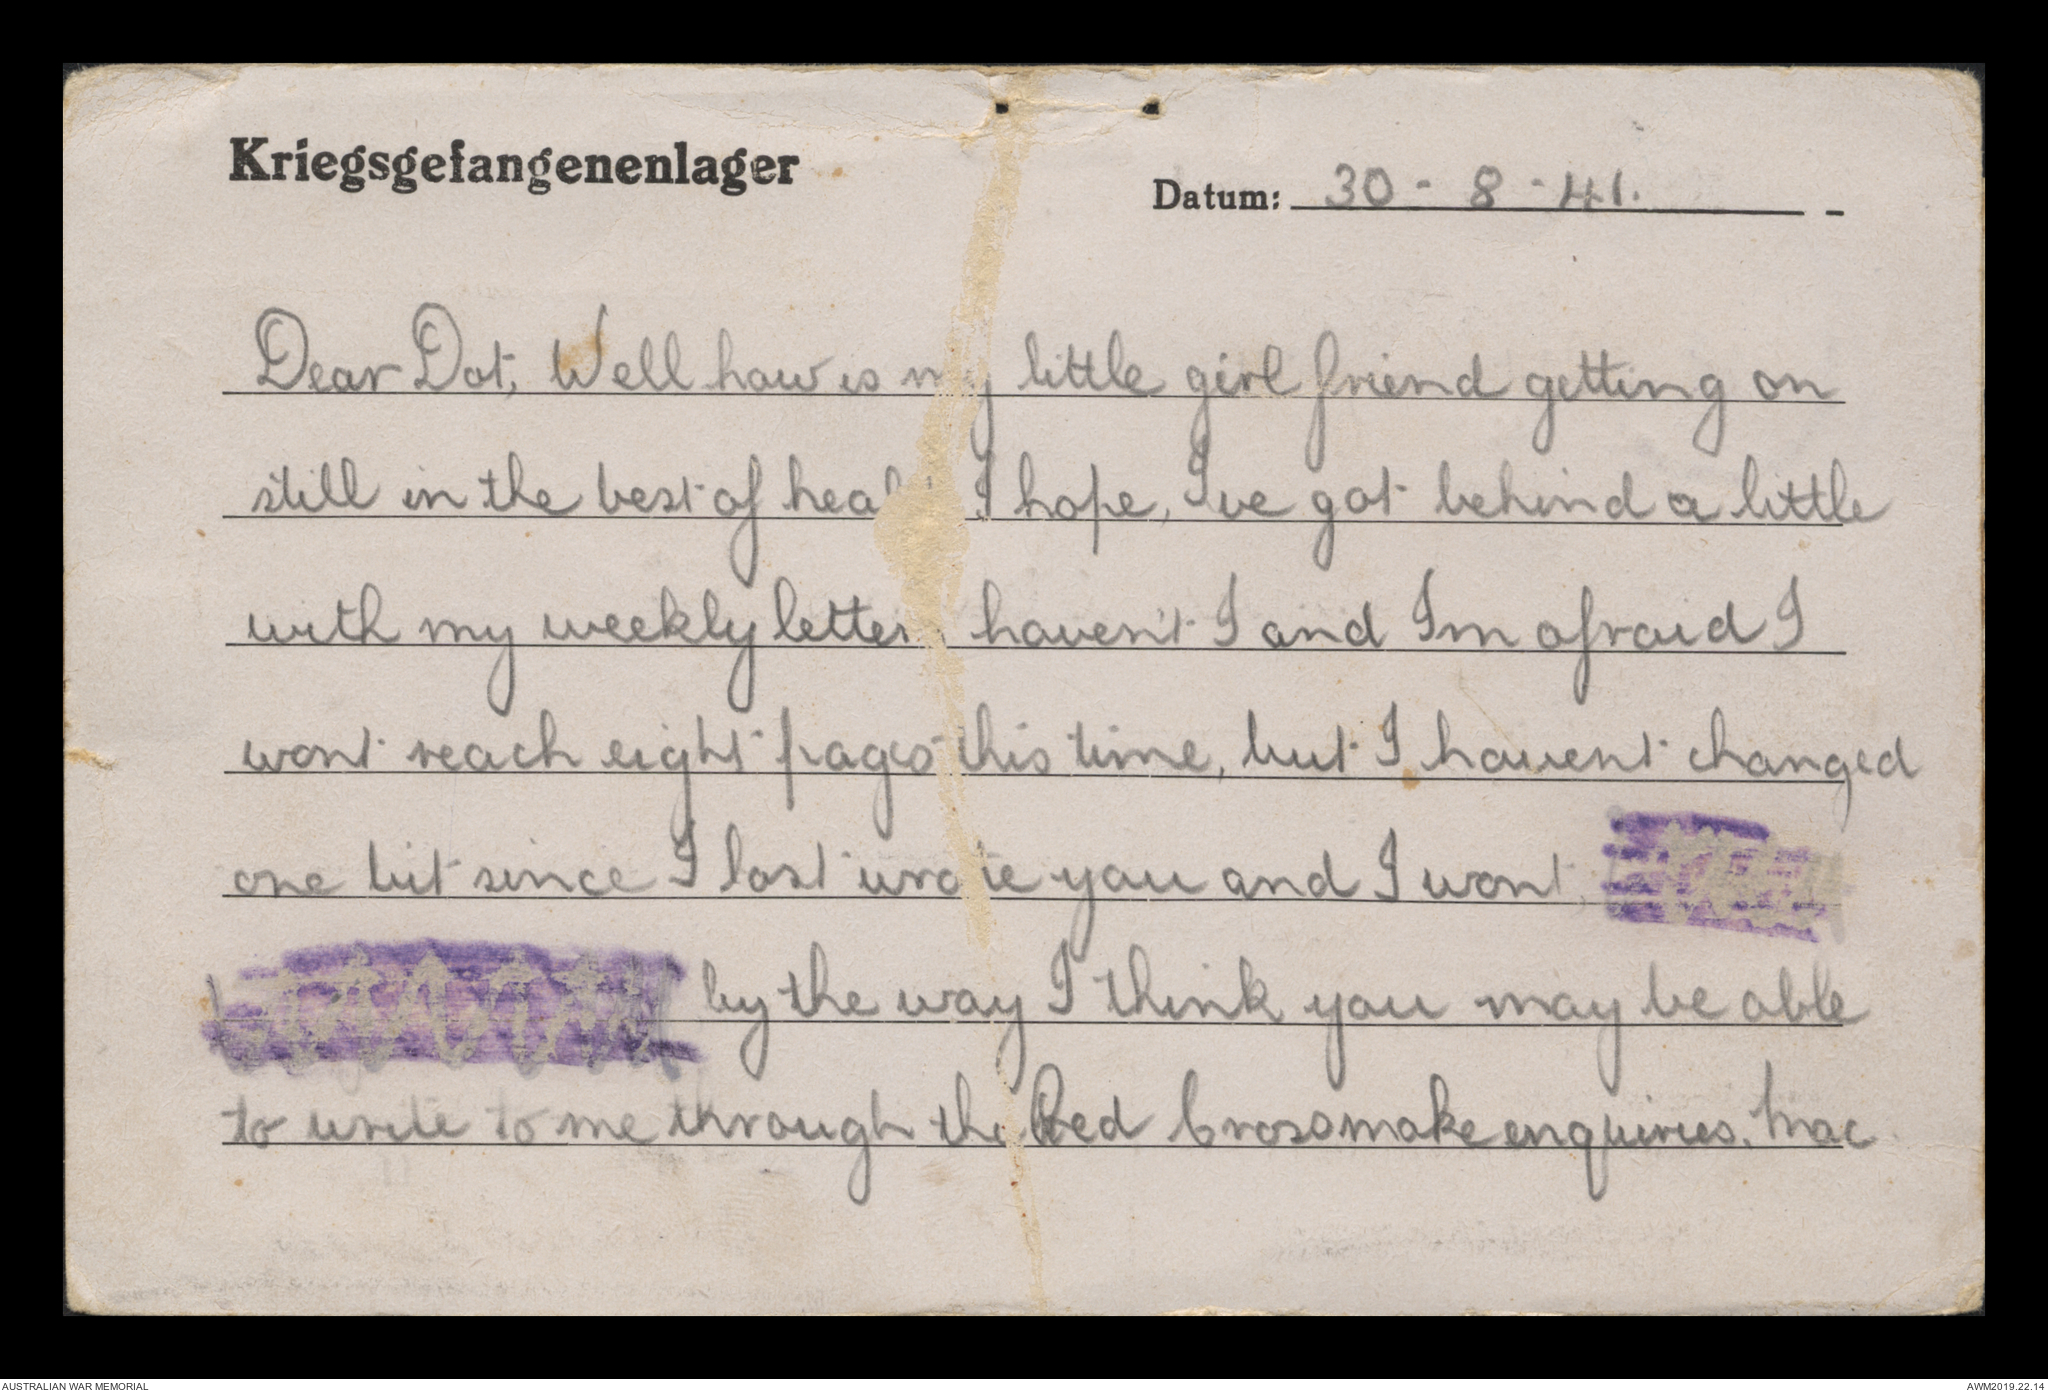 Kriegsgefangenenlager
Datum: 30-8-41.
Dear Dot, Well how is my little girl friend getting on
still in the best of health I hope, I've got behind a little
with my weekly letters haven't I and I'm afraid I
wont reach eight pages this time, but I havent changed
one bit since I last wrote you and I wont
by the way I think you may be able
to write to me through the Red Cross make enquiries. Mac
AUSTRALIAN WAR MEMORIAL
AWM2019.22.14